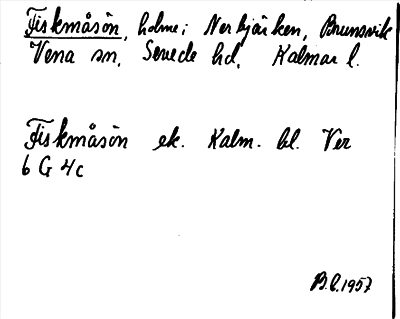 Fiskmåsön, holme i Nerbjärken, Brunsvik
Vena sn, Sevede hd, Kalmar l.
Fiskmåsön ek. Kalm. bl. Ver
6 G 4c
B.E. 1957